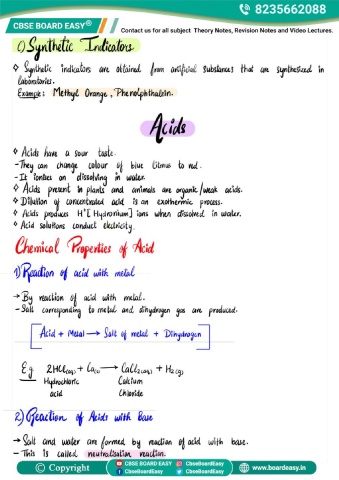 8235662088
CBSE BOARD EASY®
Contact us for all subject Theory Notes, Revision Notes and Video Lectures.
c) Synthetic Indicators
❖ Synthetic indicators are obtained from artificial substances that are synthesized in
laboratories.
Example: Methyl Orange, Phenolphthalein.
Acids
❖ Acids have a sour taste.
- They can change colour of blue litmus to red.
- It ionises on dissolving in water.
❖ Acids present in plants and animals are organic/weak acids.
❖ Dilution of concentrated acid is an exothermic process.
❖ Acids produces H⁺[Hydronium] ions when dissolved in water.
❖ Acid solutions conduct electricity.
Chemical Properties of Acid
1) Reaction of acid with metal
→ By reaction of acid with metal.
- Salt corresponding to metal and dihydrogen gas are produced.
[Acid + Metal → Salt of metal + Dihydrogen]
E.g 2HCl(aq) + Ca(s) → CaCl₂(aq) + H₂(g)
Hydrochloric Calcium
acid Chloride
2) Reaction of Acids with Base
→ Salt and water are formed by reaction of acid with base.
- This is called neutralisation reaction.
© Copyright
CBSE BOARD EASY CBseBoardEasy
CBseBoardEasy CBseBoardEasy
www.boardeasy.in